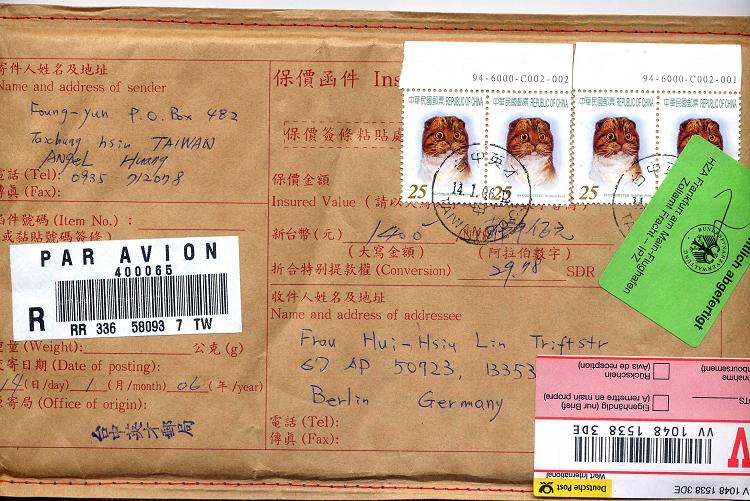 寄件人姓名及地址
Name and address of sender
Foung-yun P.O.Box 482
Taichung hsin TAIWAN
Angel Huang
電話(Tel): 0935 712078
傳真(Fax):
函件號碼(Item No.):
或黏貼號碼簽條
PAR AVION
400065
R RR 336 58093 7 TW
重量(Weight): 公克(g)
交寄日期(Date of posting):
14(日/day) 1(月/month) 06(年/year)
原寄局(Office of origin):
台中英才郵局
保價函件 Ins
保價簽條粘貼處
保價金額
Insured Value (請以
新台幣(元) 1400
(大寫金額) (阿拉伯數字)
折合特別提款權(Conversion) 29.78 SDR
收件人姓名及地址
Name and address of addressee
Frau Hui-Hsiu Lin Triftstr
67 AP 50923, 13353
Berlin Germany
電話(Tel):
傳真(Fax):
94-6000-C002-002
94-6000-C002-001
中華民國郵票 REPUBLIC OF CHINA
中華民國郵票 REPUBLIC OF CHINA
中華民國郵票 REPUBLIC OF CHINA
中華民國郵票 REPUBLIC OF CHINA
25
25
25
14.1.06.12
HZA Frankfurt am Main-Flughafen
Zollamt Fracht - IPZ
BUNDESFINANZVERWALTUNG
lich abgefertigt
Rückschein
(Avis de réception)
Eigenhändig (nur Brief)
(A remettre en main propre)
nahme
bursement)
VV 1048 1538 3DE
V
Deutsche Post
Wert International
V 1048 1538 3DE